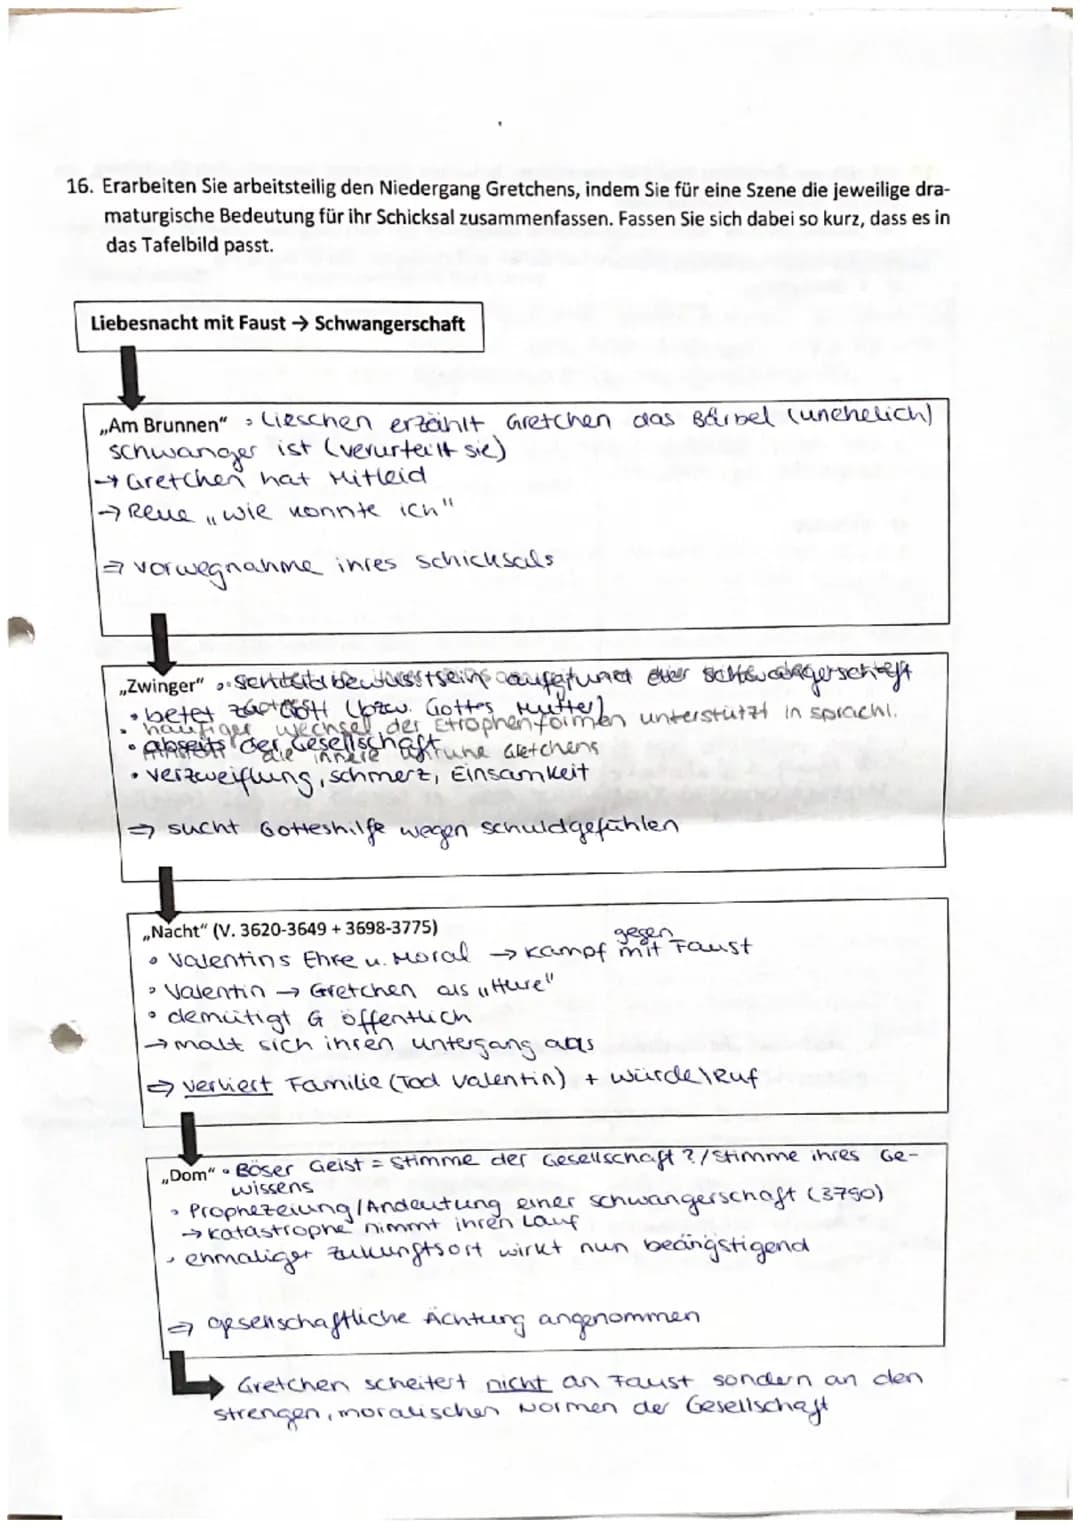 16. Erarbeiten Sie arbeitsteilig den Niedergang Gretchens, indem Sie für eine Szene die jeweilige dra-
maturgische Bedeutung für ihr Schicksal zusammenfassen. Fassen Sie sich dabei so kurz, dass es in
das Tafelbild passt.
Liebesnacht mit Faust → Schwangerschaft
„Am Brunnen" • Lieschen erzählt Gretchen das Bärbel (unehelich)
schwanger ist (verurteilt sie)
→ Gretchen hat Mitleid
→ Reue „wie konnte ich"
⇒ vorwegnahme ihres schicksals
„Zwinger" •
• betet zu Gott (bzw. Gottes Mutter)
• häufiger wechsel der Strophenformen unterstützt in sprachl.
• abseits der Gesellschaft
die innere Gretchens
• verzweiflung, schmerz, Einsamkeit
⇒ sucht Gotteshilfe wegen schuldgefühlen
„Nacht" (V. 3620-3649 + 3698-3775)
gegen
• Valentins Ehre u. Moral → Kampf mit Faust
• Valentin → Gretchen als „Hure"
• demütigt G öffentlich
→ malt sich ihren untergang aus
⇒ verliert Familie (Tod Valentin) + würde\Ruf
„Dom" • Böser Geist = Stimme der Gesellschaft ? / Stimme ihres Ge-
wissens
• Prophezeiung / Andeutung einer schwangerschaft (3790)
→ katastrophe nimmt ihren Lauf
• ehmaliger Zukunftsort wirkt nun beängstigend
⇒ gesellschaftliche Ächtung angenommen
Gretchen scheitert nicht an Faust sondern an den
strengen, moralischen Normen der Gesellschaft